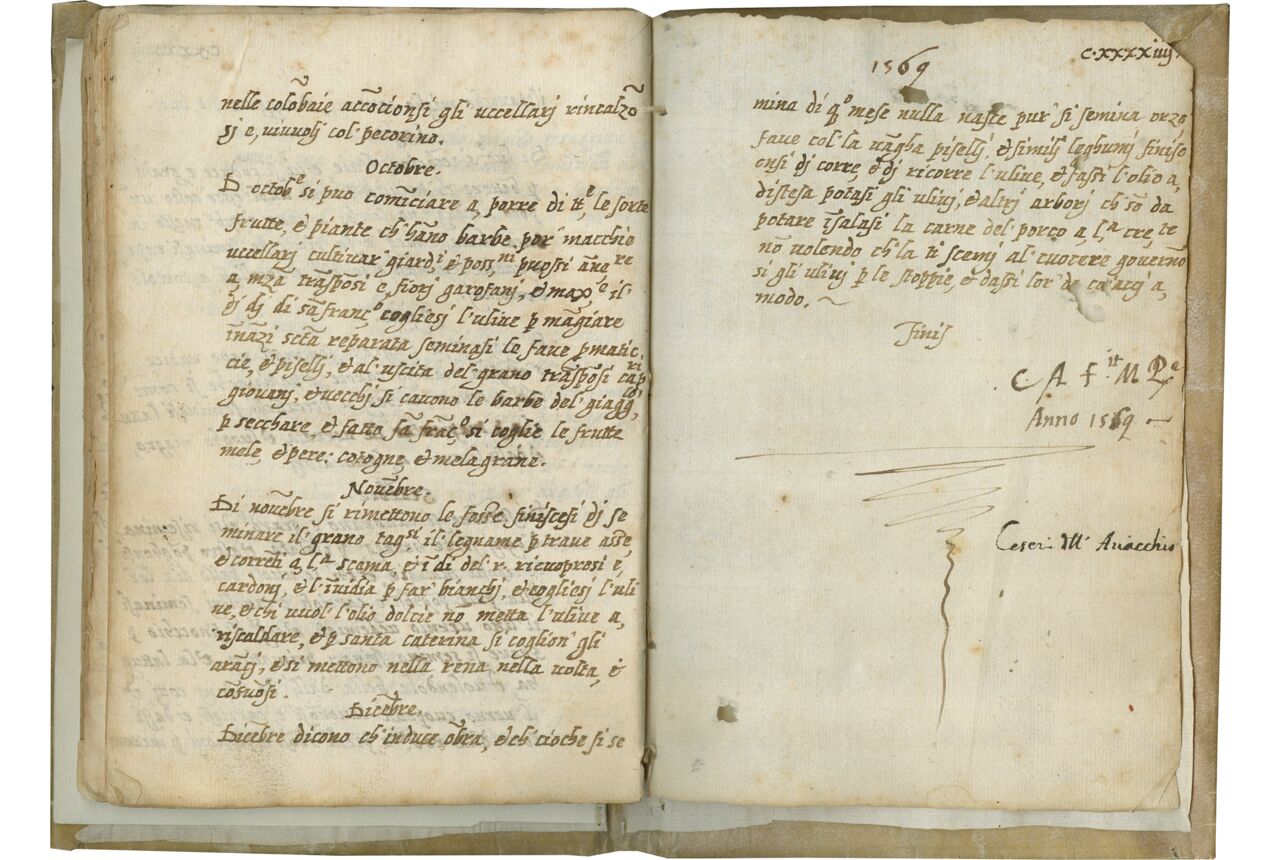 nelle colōbaie accōcionsi gli uccellarj rincalzō
sj e, viuuolj col' pecorino.
Octobre.
D octob^e si puo comīciare a, porre di tt^e, le sorte
frutte, & piante ch' hāno barbe por' macchie
uccellarj cultiuar' giard^i & poss^ni puossi anōre
a mza traſposi e, fiorj garofanj, & max^e il
dj dj di sā franç^o cogliesj l'uliue p māgiare
īnāzi scta reparata seminasi le faue pmatic
cie, & piselli, & al uscita del grano traſposi cap^ri
giouanj, & uecchj si cauono le barbe del' giagg^lo,
p secchare & fatto sā frāç^o si coglie le frutte
mele, & pere: cotogne, & melagrane.
Nouēbre.
Di nouēbre si rimettono le fosse finiscesi dj se
minare il grano tag^si il legname p traue asse,
& correti a, l^a scema, & ī dj del' r. ricuopresi e,
cardonj, & l'īuidia p far' bianchj, & cogliesj l'uli
ue, & chi uuol' l'olio dolcie nō metta l'uliue a,
riscaldare, & p santa caterina si coglion' gli
arācj, & si mettono nella rena nella uolta, &
Dicēbre.
Dicēbre dicono ch' induce ōbra, & ch' cioche si se
1569
C·XXXXiiij.
mina di q^o mese nulla naste pur' si semina orzo
faue col' la uāgha piselli, & similj leghumj finisc
onsi dj corre, & dj ricorre l'uliue, & fassi l'olio a,
distesa potasi gli uliuj, & altrj arborj ch' sō da
potare īsalasi la carne del' porco a, l^a cre, te
nō uolendo ch' la ti scemj al' cuocere gouernō
si gli uliuj p le stoppie, & dassi lor' de ca'acij a,
modo.
Finis
C A F^it M R^a
Anno 1569
Ceseri